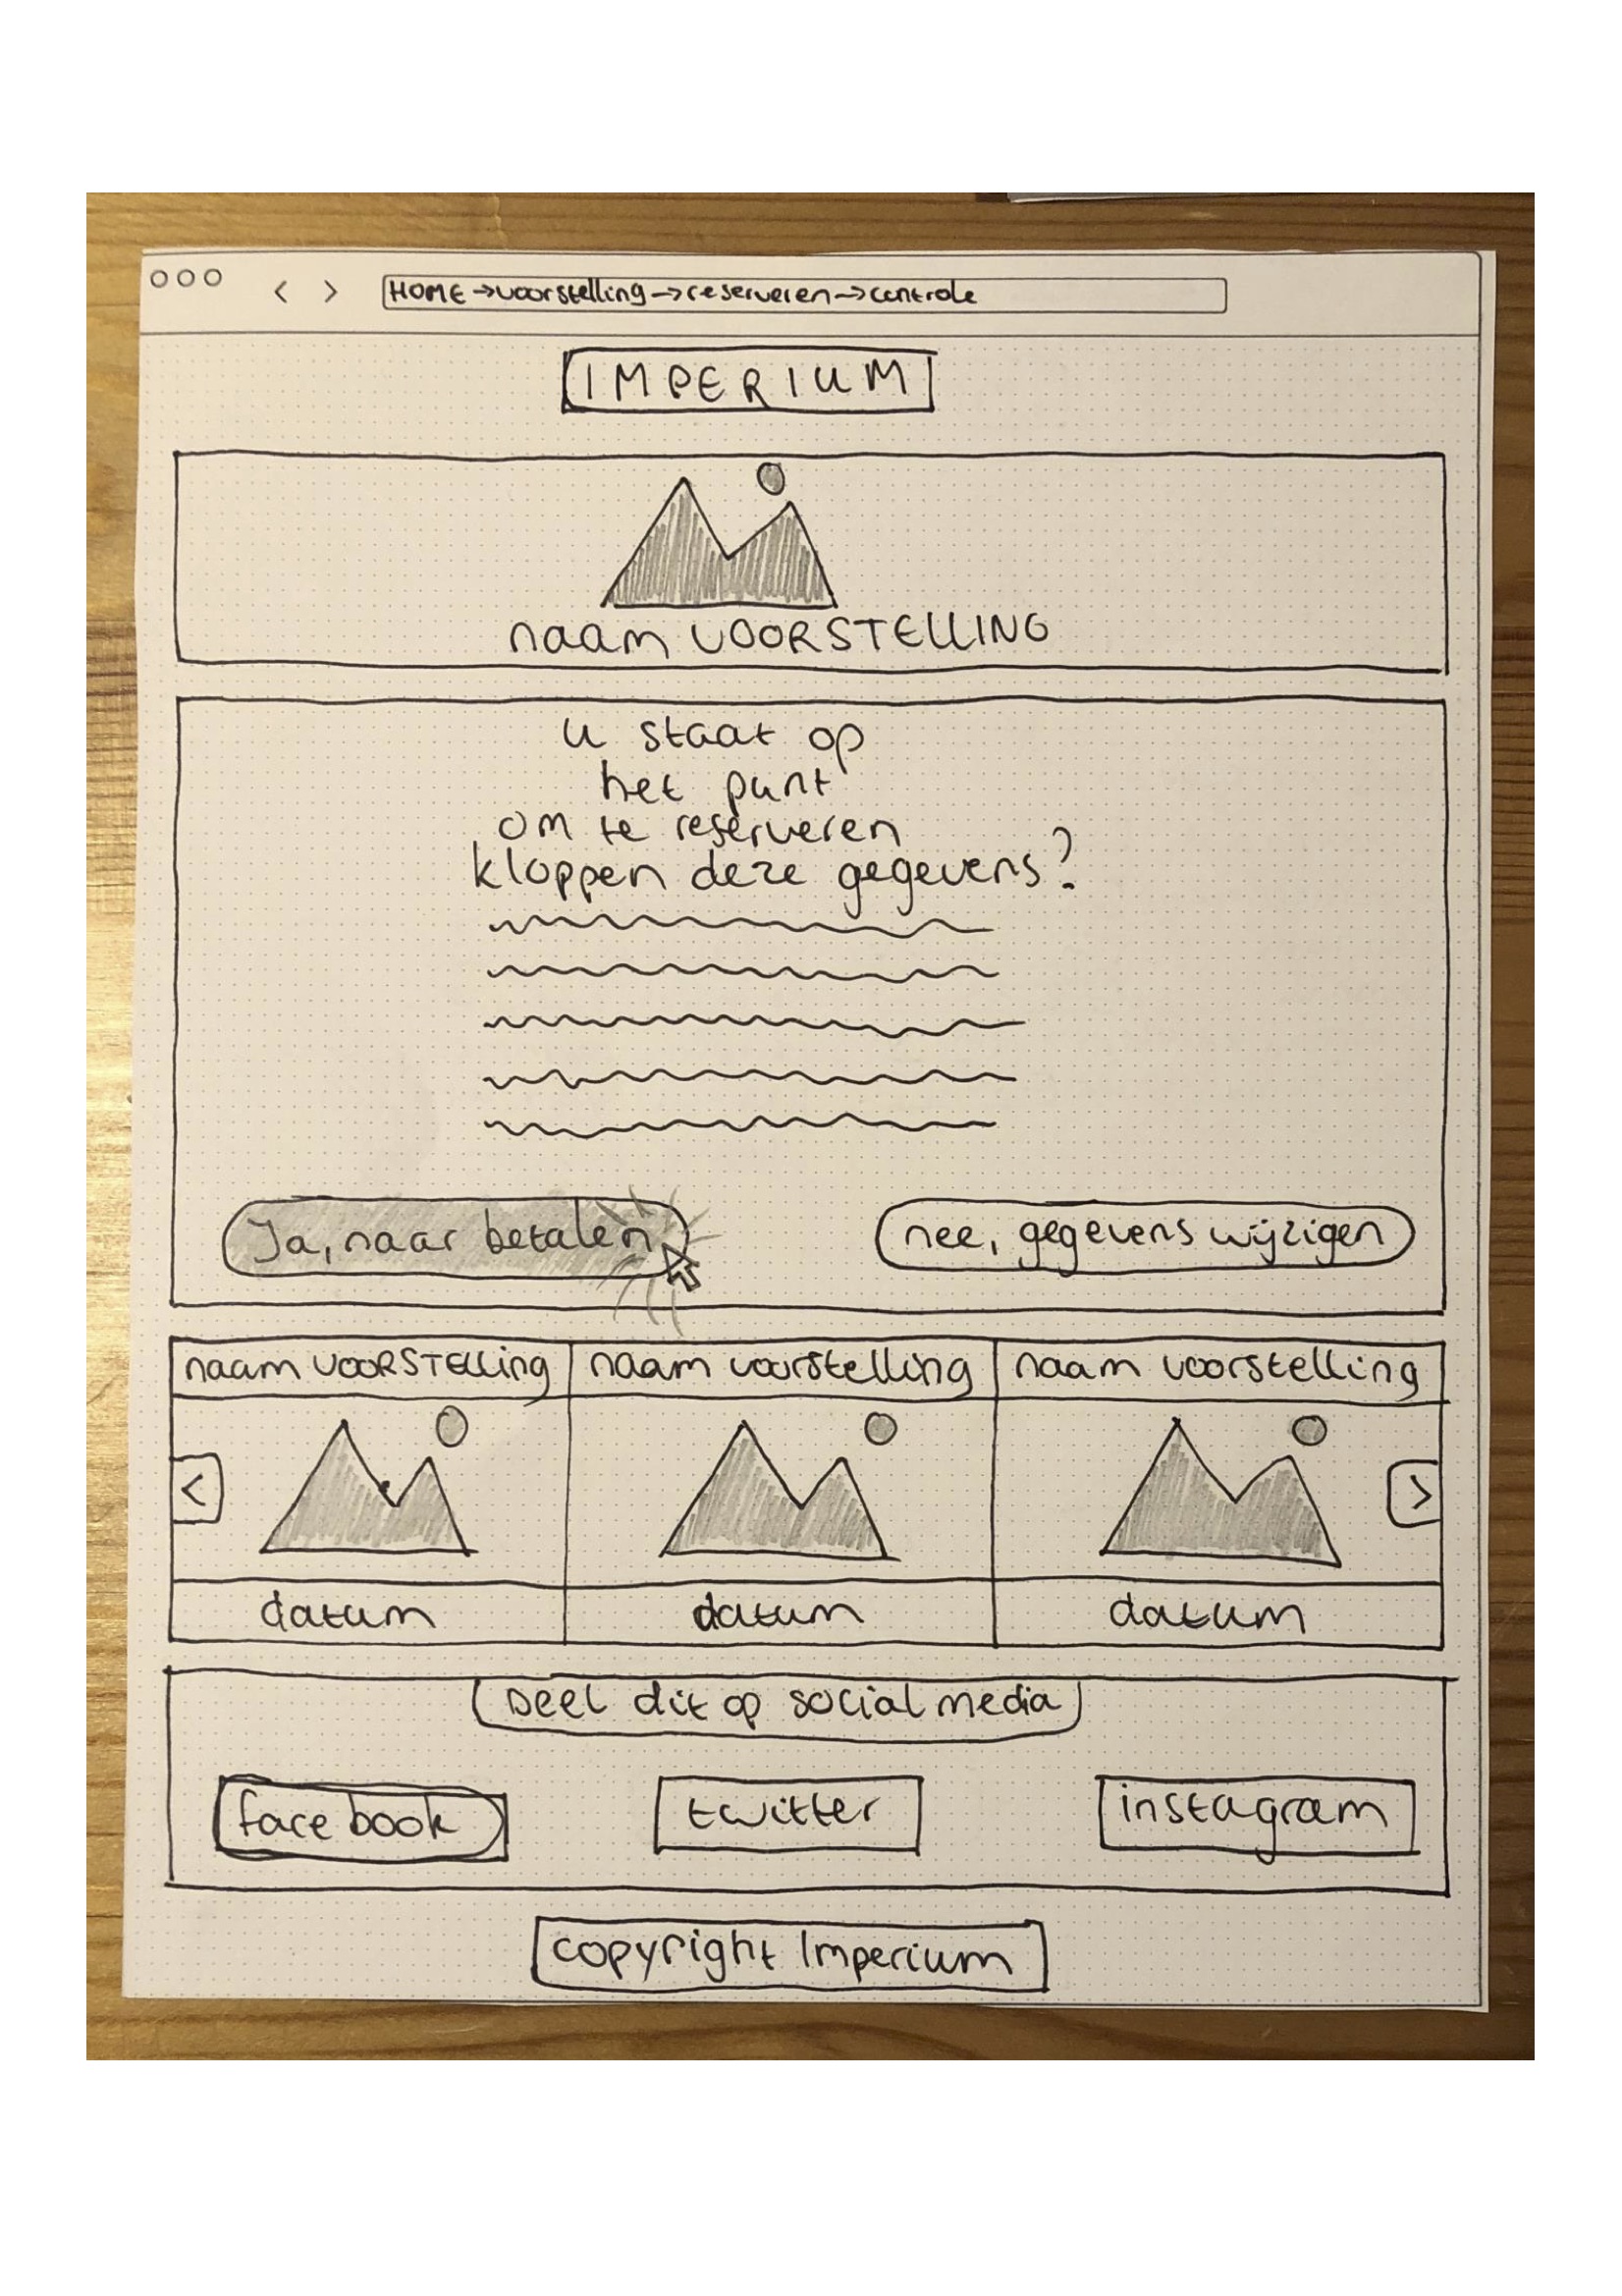 HOME →voorstelling→reserveren→controle
IMPERIUM
naam VOORSTELLING
u staat op
het punt
om te reserveren
kloppen deze gegevens?
Ja, naar betalen
nee, gegevens wijzigen
naam VOORSTELLing
naam voorstelling
naam voorstelling
<
>
datum
datum
datum
Deel dit op social media
facebook
twitter
instagram
copyright Imperium